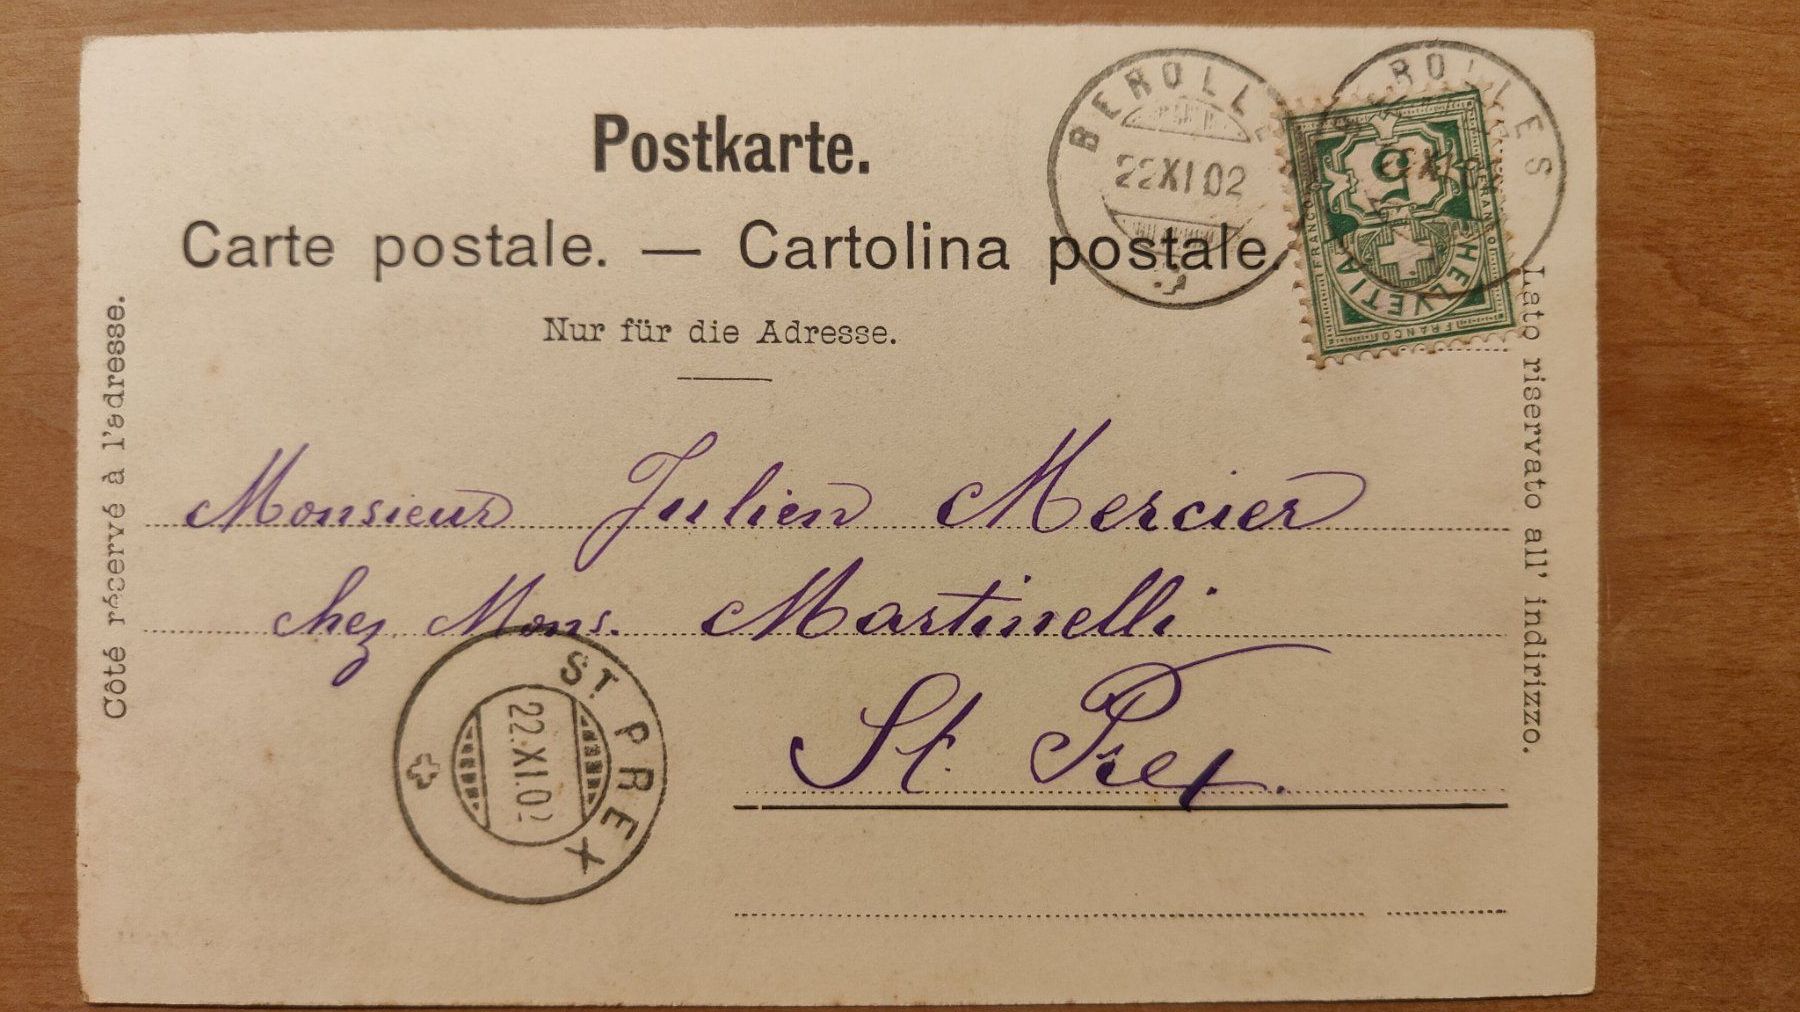 Postkarte.
Carte postale. — Cartolina postale.
Nur für die Adresse.
Côté récervé à l'adresse.
Lato riservato all' indirizzo.
BEROLLE
22 XI 02
ROLLES
XI
5
FRANCO
FRANCO
FRANCO
HELVETIA
Monsieur Julien Mercier
chez Mons. Martinelli
St. Prex.
ST PREX
22.XI.02